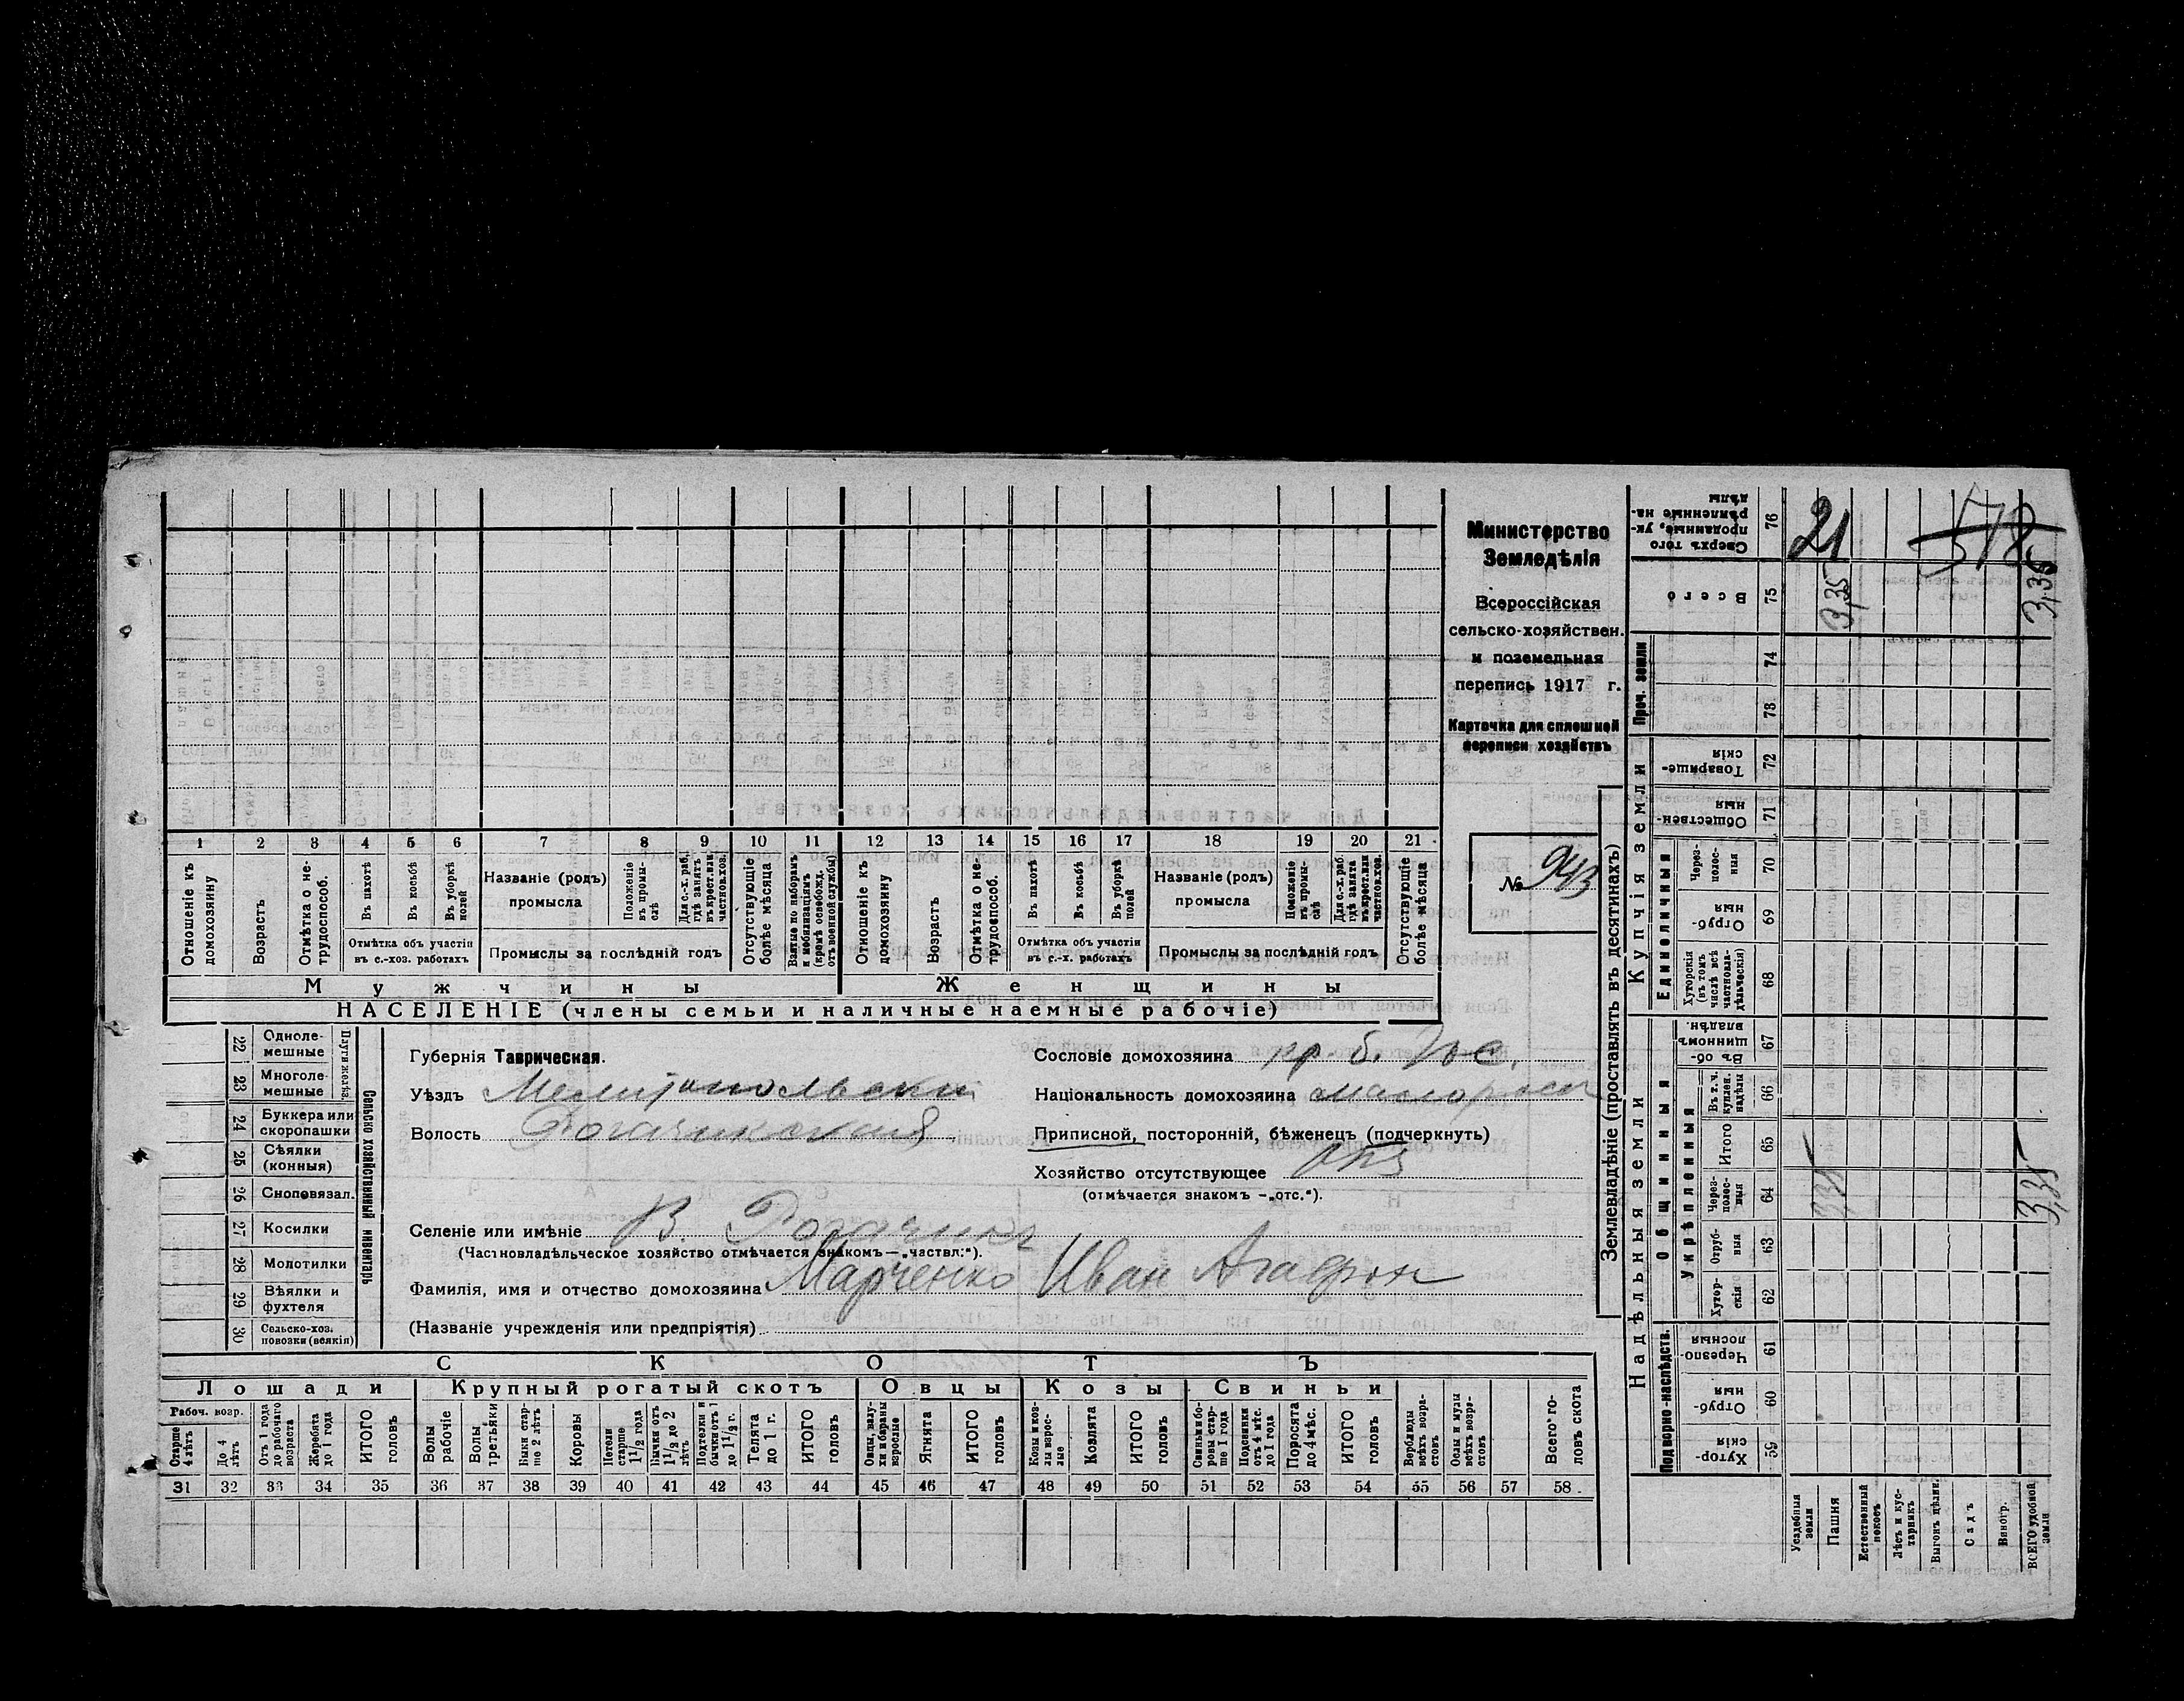 Министерство
Земледѣлія
Всероссійская
сельско-хозяйствен.
и поземельная
перепись 1917 г.
Карточка для сплошной
переписи хозяйствъ
№ 943
1 2 3 4 5 6 7 8 9 10 11 12 13 14 15 16 17 18 19 20 21
Отношеніе къ домохозяину
Возрастъ
Отмѣтка о нетрудоспособ.
Въ пахотѣ
Въ косьбѣ
Въ уборкѣ полей
Отмѣтка объ участіи
въ с.-хоз. работахъ
Названіе (родъ)
промысла
Положеніе въ промыслѣ
Для с.-х. раб. гдѣ занятъ въ крест. или частнов. хоз.
Промыслы за послѣдній годъ
Отсутствующіе болѣе мѣсяца
Взятые по наборамъ и мобилизаціямъ (кромѣ освобожд. отъ военной службы)
Отношеніе къ домохозяину
Возрастъ
Отмѣтка о нетрудоспособ.
Въ пахотѣ
Въ косьбѣ
Въ уборкѣ полей
Отмѣтка объ участіи
въ с.-х. работахъ
Названіе (родъ)
промысла
Положеніе въ промыслѣ
Для с.-х. раб. гдѣ занята въ крест. или частнов. хоз.
Промыслы за послѣдній годъ
Отсутствующіе болѣе мѣсяца
Мужчины
Женщины
НАСЕЛЕНІЕ (члены семьи и наличные наемные рабочіе)
Сельско хозяйственный инвентарь
Плуги желѣз.
22 Однолемешные
23 Многолемешные
24 Буккера или скоропашки
25 Сѣялки (конныя)
26 Сноповязал.
27 Косилки
28 Молотилки
29 Вѣялки и фухтеля
30 Сельско-хоз. повозки (всякія)
Губернія Таврическая.
Уѣздъ Мелитопольский
Волость Рогачикская
Сословіе домохозяина
Національность домохозяина малоросс
Приписной, посторонній, бѣженецъ (подчеркнуть)
Хозяйство отсутствующее
(отмѣчается знакомъ —„отс.“).
Селеніе или имѣніе В. Рогачик
(Частновладѣльческое хозяйство отмѣчается знакомъ—„частвл.“).
Фамилія, имя и отчество домохозяина Марченко Иван Агафон
(Названіе учрежденія или предпріятія)
СКОТЪ
Лошади
Крупный рогатый скотъ
Овцы
Козы
Свиньи
Рабоч. возр.
Старше 4 лѣтъ
До 4 лѣтъ
Отъ 1 года до рабочаго возраста
Жеребята до 1 года
ИТОГО головъ
Волы рабочіе
Волы третьяки
Быки старше 2 лѣтъ
Коровы
Нетели старше 1 1/2 года
Бычки отъ 1 1/2 до 2 лѣтъ
Подтелки и бычки отъ 1 до 1 1/2 г.
Телята до 1 г.
ИТОГО головъ
Овцы, валухи и бараны взрослые
Ягнята
ИТОГО головъ
Козы и козлы взрослые
Козлята
ИТОГО головъ
Свиньи и боровы старше 1 года
Подсвинки отъ 4 мѣс. до 1 года
Поросята до 4 мѣс.
ИТОГО головъ
Верблюды всѣхъ возрастовъ
Ослы и мулы всѣхъ возрастовъ
Всего головъ скота
31 32 33 34 35 36 37 38 39 40 41 42 43 44 45 46 47 48 49 50 51 52 53 54 55 56 57 58
Землевладѣніе (проставлять въ десятинахъ)
Надѣльныя земли
Купчія земли
Проч. земли
Подворно-наслѣдств.
Общинныя
Укрѣпленныя
Единоличныя
Хуторскія 59
Отрубныя 60
Черезполосныя 61
Хуторскія 62
Отрубныя 63
Черезполосныя 64
Итого 65
Въ т. ч. куплен. надѣлы 66
Въ общинномъ владѣн. 67
Хуторскія (въ томъ числѣ всѣ частновладѣльческія) 68
Отрубныя 69
Черезполосныя 70
Общественныя 71
Товарищескія 72
73
74
Всего 75
Сверхъ того проданные, укрѣпленные надѣлы 76
Усадебныя земли
Пашня
Естественный покосъ
Лѣсъ и кустарникъ
Выгонъ дѣлин.
Садъ
Виногр.
ВСЕГО удобной земли
21
3,35
3,35
3,35
3,35